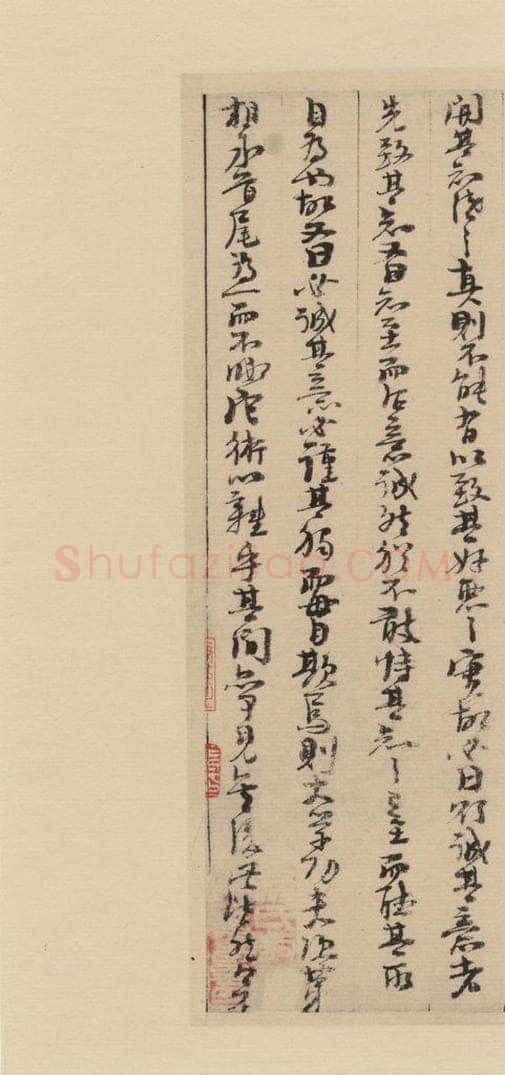 開其知識之真則不能有以致其好惡之實故必曰欲誠其意者
先致其知又曰知至而后意誠然猶不敢恃其知之至而聽其所
自為也故又曰必誠其意必謹其獨而毋自欺焉則大學功夫次第
相承首尾為一而不假它術以雜乎其間亦可見矣後此皆然今不